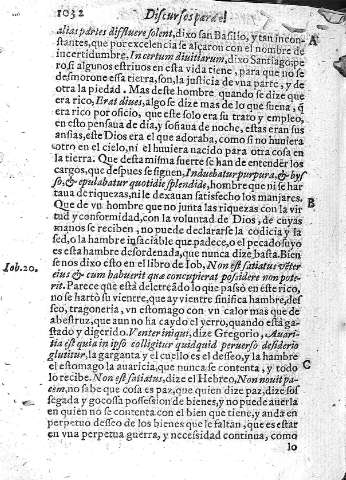 1032 Discursos para el
alias partes diffluere solent, dixo san Basilio, y tan incon-
stantes, que por excelencia se alçaron con el nombre de
incertidumbre. Incertum diuitiarum, dixo Santiago: pe
ro si algunos estriuos en esta vida tiene, para que no se
desmorone essa tierra, son, la justicia de vna parte, y de
otra la piedad. Mas deste hombre quando se dize que
era rico, Erat diues, algo se dize mas de lo que suena, q̃
era rico por oficio, que este solo era su trato y empleo,
en esto pensaua de dia, y soñaua de noche, estas eran sus
ansias, este Dios era el que adoraba, como si no huuiera
otro en el cielo, ni el huuiera nacido para otra cosa en
la tierra. Que desta misma suerte se han de entender los
cargos, que despues se siguen, Induebatur purpura, & bys
so, & epulabatur quotidie splendide, hombre que ni se har
taua de riquezas, ni le dexauan satisfecho los manjares.
Que de vn hombre que no junta las riquezas con la vir
tud y conformidad, con la voluntad de Dios, de cuyas
manos se reciben, no puede declararse la codicia y la
sed, o la hambre insaciable que padece, o el pecado suyo
es esta hambre desordenada, que nunca dize, basta. Bien
se nos dixo esto en el libro de Iob, Non est satiatus vẽter
Iob. 20.
eius & cum habuerit quæ concupierat possidere non pote-
rit. Parece que està deletreãdo lo que passò en este rico,
no se hartò su vientre, que ay vientre sinifica hambre, des
seo, tragoneria, vn estomago con vn calor mas que de
abestruz, que aun no ha caydo el yerro, quando està ga-
stado y digerido. Venter iniqui, dize Gregorio, Auari-
tia est quia in ipso colligitur quidquid peruerso desiderio
glutitur, la garganta y el cuello es el desseo, y la hambre
el estomago la auaricia, que nunca se contenta, y todo
lo recibe. Non est satiatus, dize el Hebreo, Non nouit pa-
cem, no sabe que cosa es paz, que quien dize paz, dize sos
segada y gocossa possession de bienes, y no puede auerla
en quien no se contenta con el bien que tiene, y anda en
perpetuo desseo de los bienes que le faltan, que es estar
en vna perpetua guerra, y necessidad continua, como
lo
A
B
C